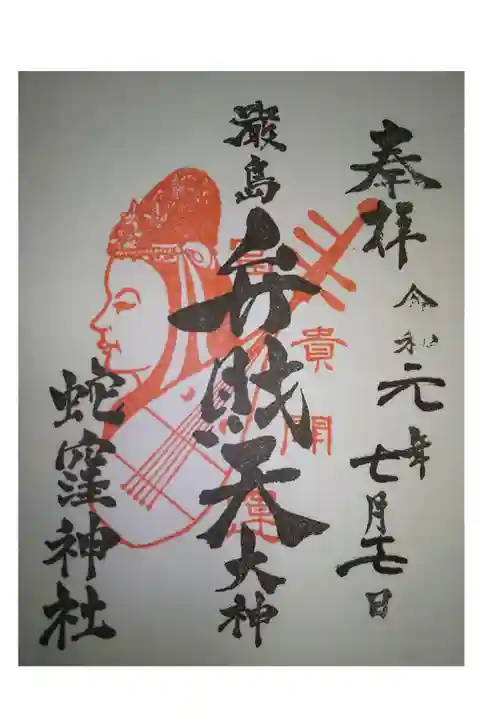 奉拝
令和元年七月十七日
嚴島
弁財天
大神
蛇窪神社
富貴開